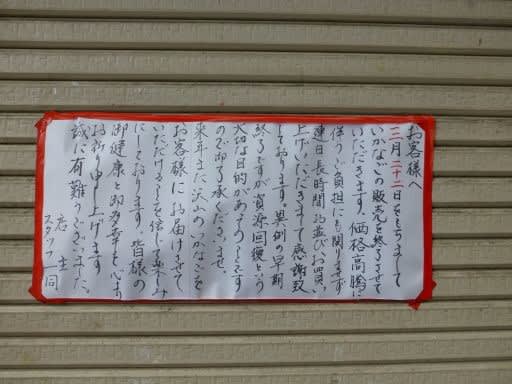 お客様へ
三月二十二日をもちまして
いかなごの販売を終了させて
いただきます。価格高騰に
伴うご負担にも関わらず
連日長時間お並び、お買い
上げいただきまして感謝致
しております。異例の早期
終了ですが資源回復という
大切な目的があってのことです
ので御了承くださいませ。
来年また沢山のいかなごを
お客様にお届けさせて
いただけることを信じ楽しみ
にしております。皆様の
御健康と御多幸を心より
お祈り申し上げます。
誠に有難うございました。
店主
スタッフ一同